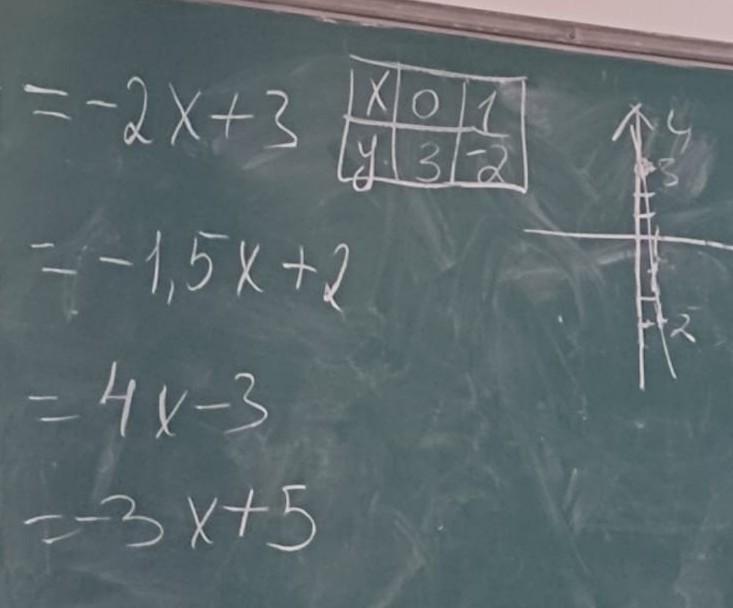 = -2x+3
x 0 1
y 3 -2
y
3
-2
= -1,5x+2
= 4x-3
= -3x+5